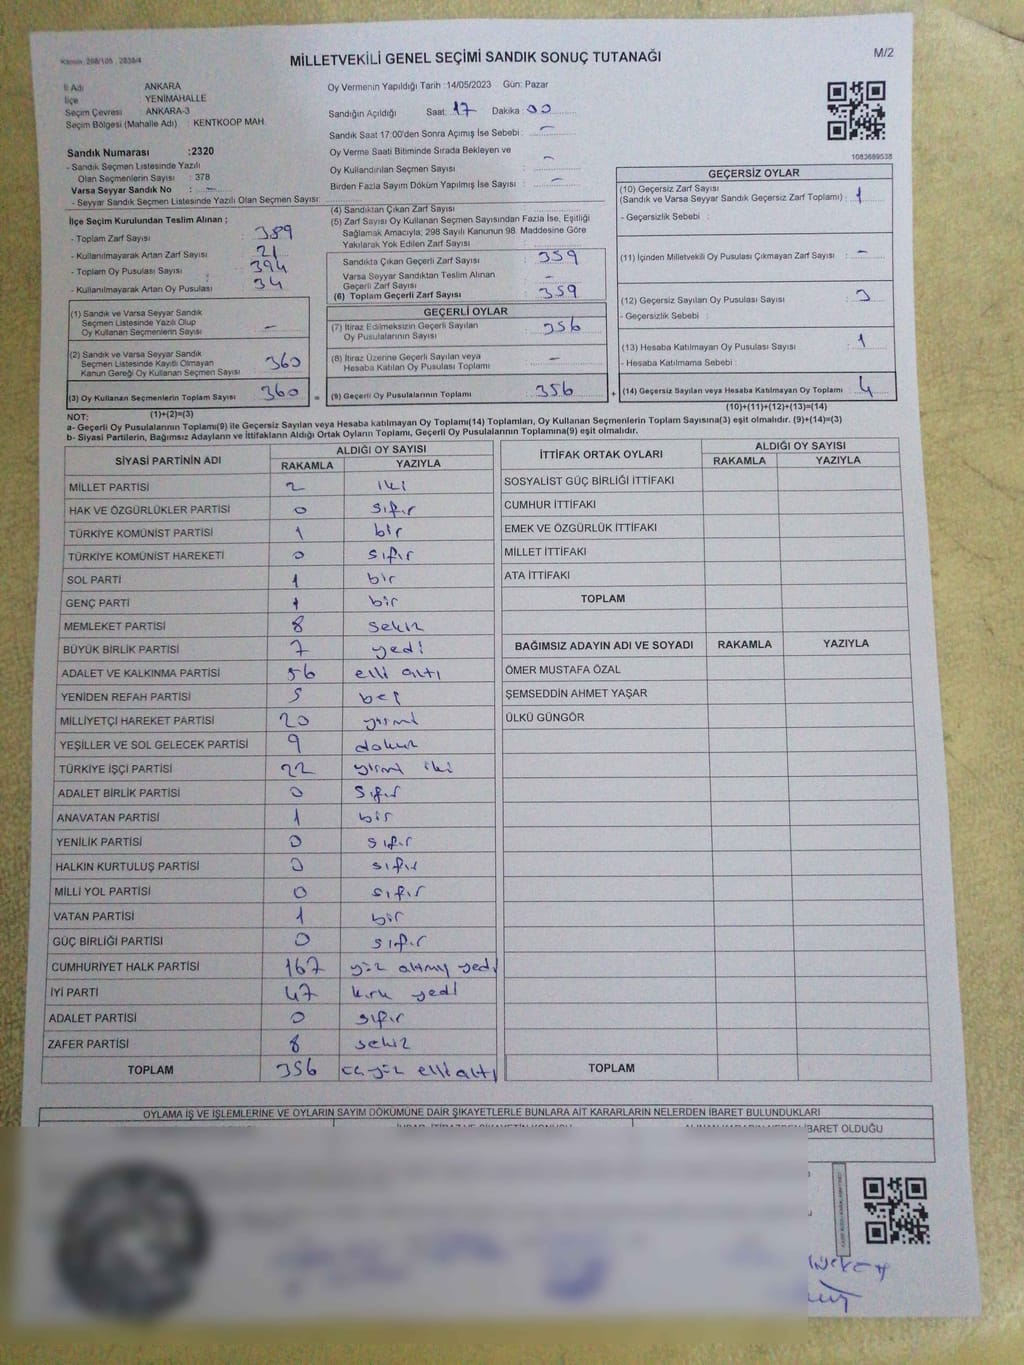 MİLLETVEKİLİ GENEL SEÇİMİ SANDIK SONUÇ TUTANAĞI
M/2
İl Adı : ANKARA
İlçe : YENİMAHALLE
Seçim Çevresi : ANKARA-3
Seçim Bölgesi (Mahalle Adı) : KENTKOOP MAH.
Sandık Numarası :2320
- Sandık Seçmen Listesinde Yazılı
Olan Seçmenlerin Sayısı : 378
Varsa Seyyar Sandık No : -
- Seyyar Sandık Seçmen Listesinde Yazılı Olan Seçmen Sayısı:
Oy Vermenin Yapıldığı Tarih :14/05/2023 Gün: Pazar
Sandığın Açıldığı Saat: 17 Dakika: 00
Sandık Saat 17:00'den Sonra Açımış İse Sebebi : -
Oy Verme Saati Bitiminde Sırada Bekleyen ve
Oy Kullandırılan Seçmen Sayısı : -
Birden Fazla Sayım Döküm Yapılmış İse Sayısı : -
1083689538
İlçe Seçim Kurulundan Teslim Alınan ;
- Toplam Zarf Sayısı : 389
- Kullanılmayarak Artan Zarf Sayısı : 21
- Toplam Oy Pusulası Sayısı : 394
- Kullanılmayarak Artan Oy Pusulası : 34
(1) Sandık ve Varsa Seyyar Sandık
Seçmen Listesinde Yazılı Olup
Oy Kullanan Seçmenlerin Sayısı : -
(2) Sandık ve Varsa Seyyar Sandık
Seçmen Listesinde Kayıtlı Olmayan
Kanun Gereği Oy Kullanan Seçmen Sayısı : 360
(3) Oy Kullanan Seçmenlerin Toplam Sayısı : 360
(1)+(2)=(3)
(4) Sandıktan Çıkan Zarf Sayısı :
(5) Zarf Sayısı Oy Kullanan Seçmen Sayısından Fazla İse, Eşitliği
Sağlamak Amacıyla, 298 Sayılı Kanunun 98. Maddesine Göre
Yakılarak Yok Edilen Zarf Sayısı :
Sandıkta Çıkan Geçerli Zarf Sayısı : 359
Varsa Seyyar Sandıktan Teslim Alınan
Geçerli Zarf Sayısı : -
(6) Toplam Geçerli Zarf Sayısı : 359
GEÇERLİ OYLAR
(7) İtiraz Edilmeksizin Geçerli Sayılan
Oy Pusulalarının Sayısı : 356
(8) İtiraz Üzerine Geçerli Sayılan veya
Hesaba Katılan Oy Pusulası Toplamı : -
= (9) Geçerli Oy Pusulalarının Toplamı : 356
GEÇERSİZ OYLAR
(10) Geçersiz Zarf Sayısı
(Sandık ve Varsa Seyyar Sandık Geçersiz Zarf Toplamı) : 1
- Geçersizlik Sebebi :
(11) İçinden Milletvekili Oy Pusulası Çıkmayan Zarf Sayısı : -
(12) Geçersiz Sayılan Oy Pusulası Sayısı : 3
- Geçersizlik Sebebi :
(13) Hesaba Katılmayan Oy Pusulası Sayısı : 1
- Hesaba Katılmama Sebebi :
+ (14) Geçersiz Sayılan veya Hesaba Katılmayan Oy Toplamı : 4
(10)+(11)+(12)+(13)=(14)
NOT:
a- Geçerli Oy Pusulalarının Toplamı(9) ile Geçersiz Sayılan veya Hesaba katılmayan Oy Toplamı(14) Toplamları, Oy Kullanan Seçmenlerin Toplam Sayısına(3) eşit olmalıdır. (9)+(14)=(3)
b- Siyasi Partilerin, Bağımsız Adayların ve İttifakların Aldığı Ortak Oyların Toplamı, Geçerli Oy Pusulalarının Toplamına(9) eşit olmalıdır.
SİYASİ PARTİNİN ADI ALDIĞI OY SAYISI
RAKAMLA YAZIYLA
MİLLET PARTİSİ 2 iki
HAK VE ÖZGÜRLÜKLER PARTİSİ 0 sıfır
TÜRKİYE KOMÜNİST PARTİSİ 1 bir
TÜRKİYE KOMÜNİST HAREKETİ 0 sıfır
SOL PARTİ 1 bir
GENÇ PARTİ 1 bir
MEMLEKET PARTİSİ 8 sekiz
BÜYÜK BİRLİK PARTİSİ 7 yedi
ADALET VE KALKINMA PARTİSİ 56 elli altı
YENİDEN REFAH PARTİSİ 5 beş
MİLLİYETÇİ HAREKET PARTİSİ 20 yirmi
YEŞİLLER VE SOL GELECEK PARTİSİ 9 dokuz
TÜRKİYE İŞÇİ PARTİSİ 22 yirmi iki
ADALET BİRLİK PARTİSİ 0 sıfır
ANAVATAN PARTİSİ 1 bir
YENİLİK PARTİSİ 0 sıfır
HALKIN KURTULUŞ PARTİSİ 0 sıfır
MİLLİ YOL PARTİSİ 0 sıfır
VATAN PARTİSİ 1 bir
GÜÇ BİRLİĞİ PARTİSİ 0 sıfır
CUMHURİYET HALK PARTİSİ 167 yüz altmış yedi
İYİ PARTİ 47 kırk yedi
ADALET PARTİSİ 0 sıfır
ZAFER PARTİSİ 8 sekiz
TOPLAM 356 üçyüz elli altı
İTTİFAK ORTAK OYLARI ALDIĞI OY SAYISI
RAKAMLA YAZIYLA
SOSYALİST GÜÇ BİRLİĞİ İTTİFAKI
CUMHUR İTTİFAKI
EMEK VE ÖZGÜRLÜK İTTİFAKI
MİLLET İTTİFAKI
ATA İTTİFAKI
TOPLAM
BAĞIMSIZ ADAYIN ADI VE SOYADI RAKAMLA YAZIYLA
ÖMER MUSTAFA ÖZAL
ŞEMSEDDİN AHMET YAŞAR
ÜLKÜ GÜNGÖR
TOPLAM
OYLAMA İŞ VE İŞLEMLERİNE VE OYLARIN SAYIM DÖKÜMÜNE DAİR ŞİKAYETLERLE BUNLARA AİT KARARLARIN NELERDEN İBARET BULUNDUKLARI
İBARET OLDUĞU